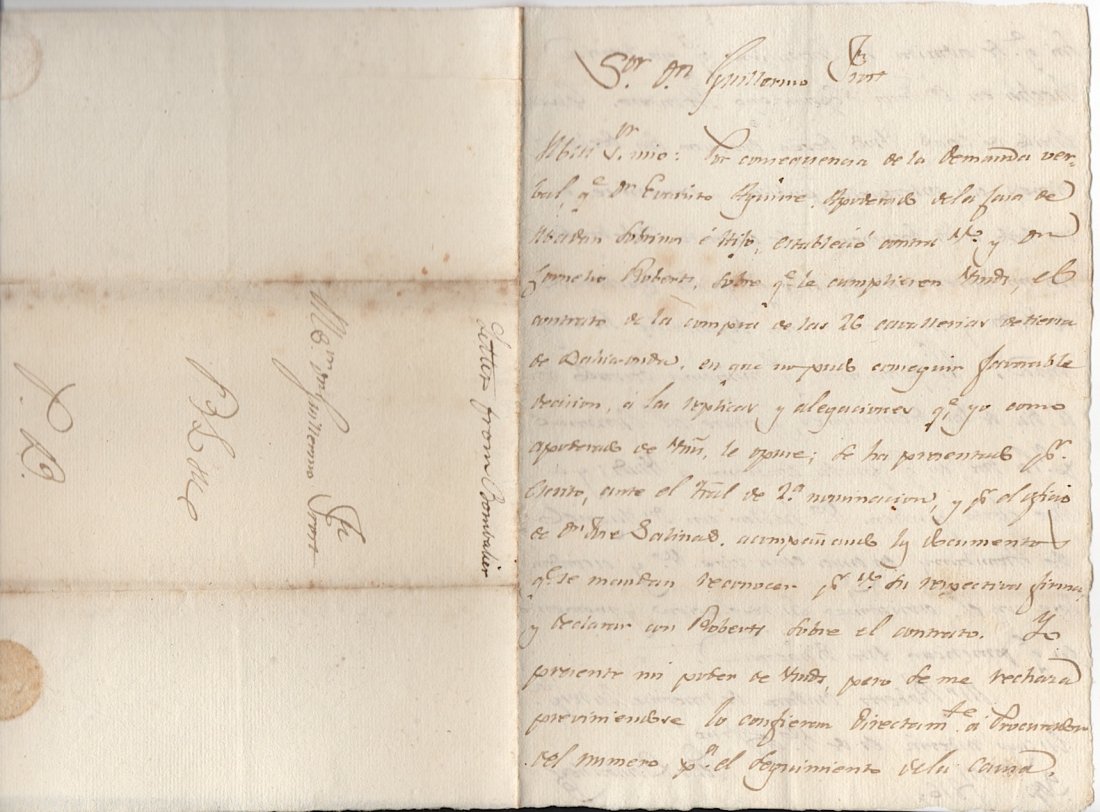 Sor. Dn. Guillermo
Muy Sr. mio: Por consequencia de la demanda ver-
bal, qe. Dn. Evaristo Aguirre, Apoderado de la Casa de
Madan Sobrino é Hijo, estableció contra V. y Dn.
Cornelio Roberts, sobre qe. le cumpliesen Vmds, el
contrato de la compra de las 26 cavallerias de tierra
de Bahia-onda, en que no pudo conseguir favorable
decision, á las replicas y alegaciones qe. yo como
apoderado de Vm, le opuse; se ha presentado pr.
Escrito, ante el Tral. de 2a. nominacion, y pr. el oficio
de Dn. José Salinas, acompañando los documentos
qe. se mandan reconocer pr. V. su respectiva firma,
y declarar con Roberts sobre el contrato. Yo
presenté mi poder de Vmds, pero se me rechazó
previniendose lo confieran directamte. á Procurador
del numero pa. el seguimiento de la causa,
Letter from Bombalier
Guillermo